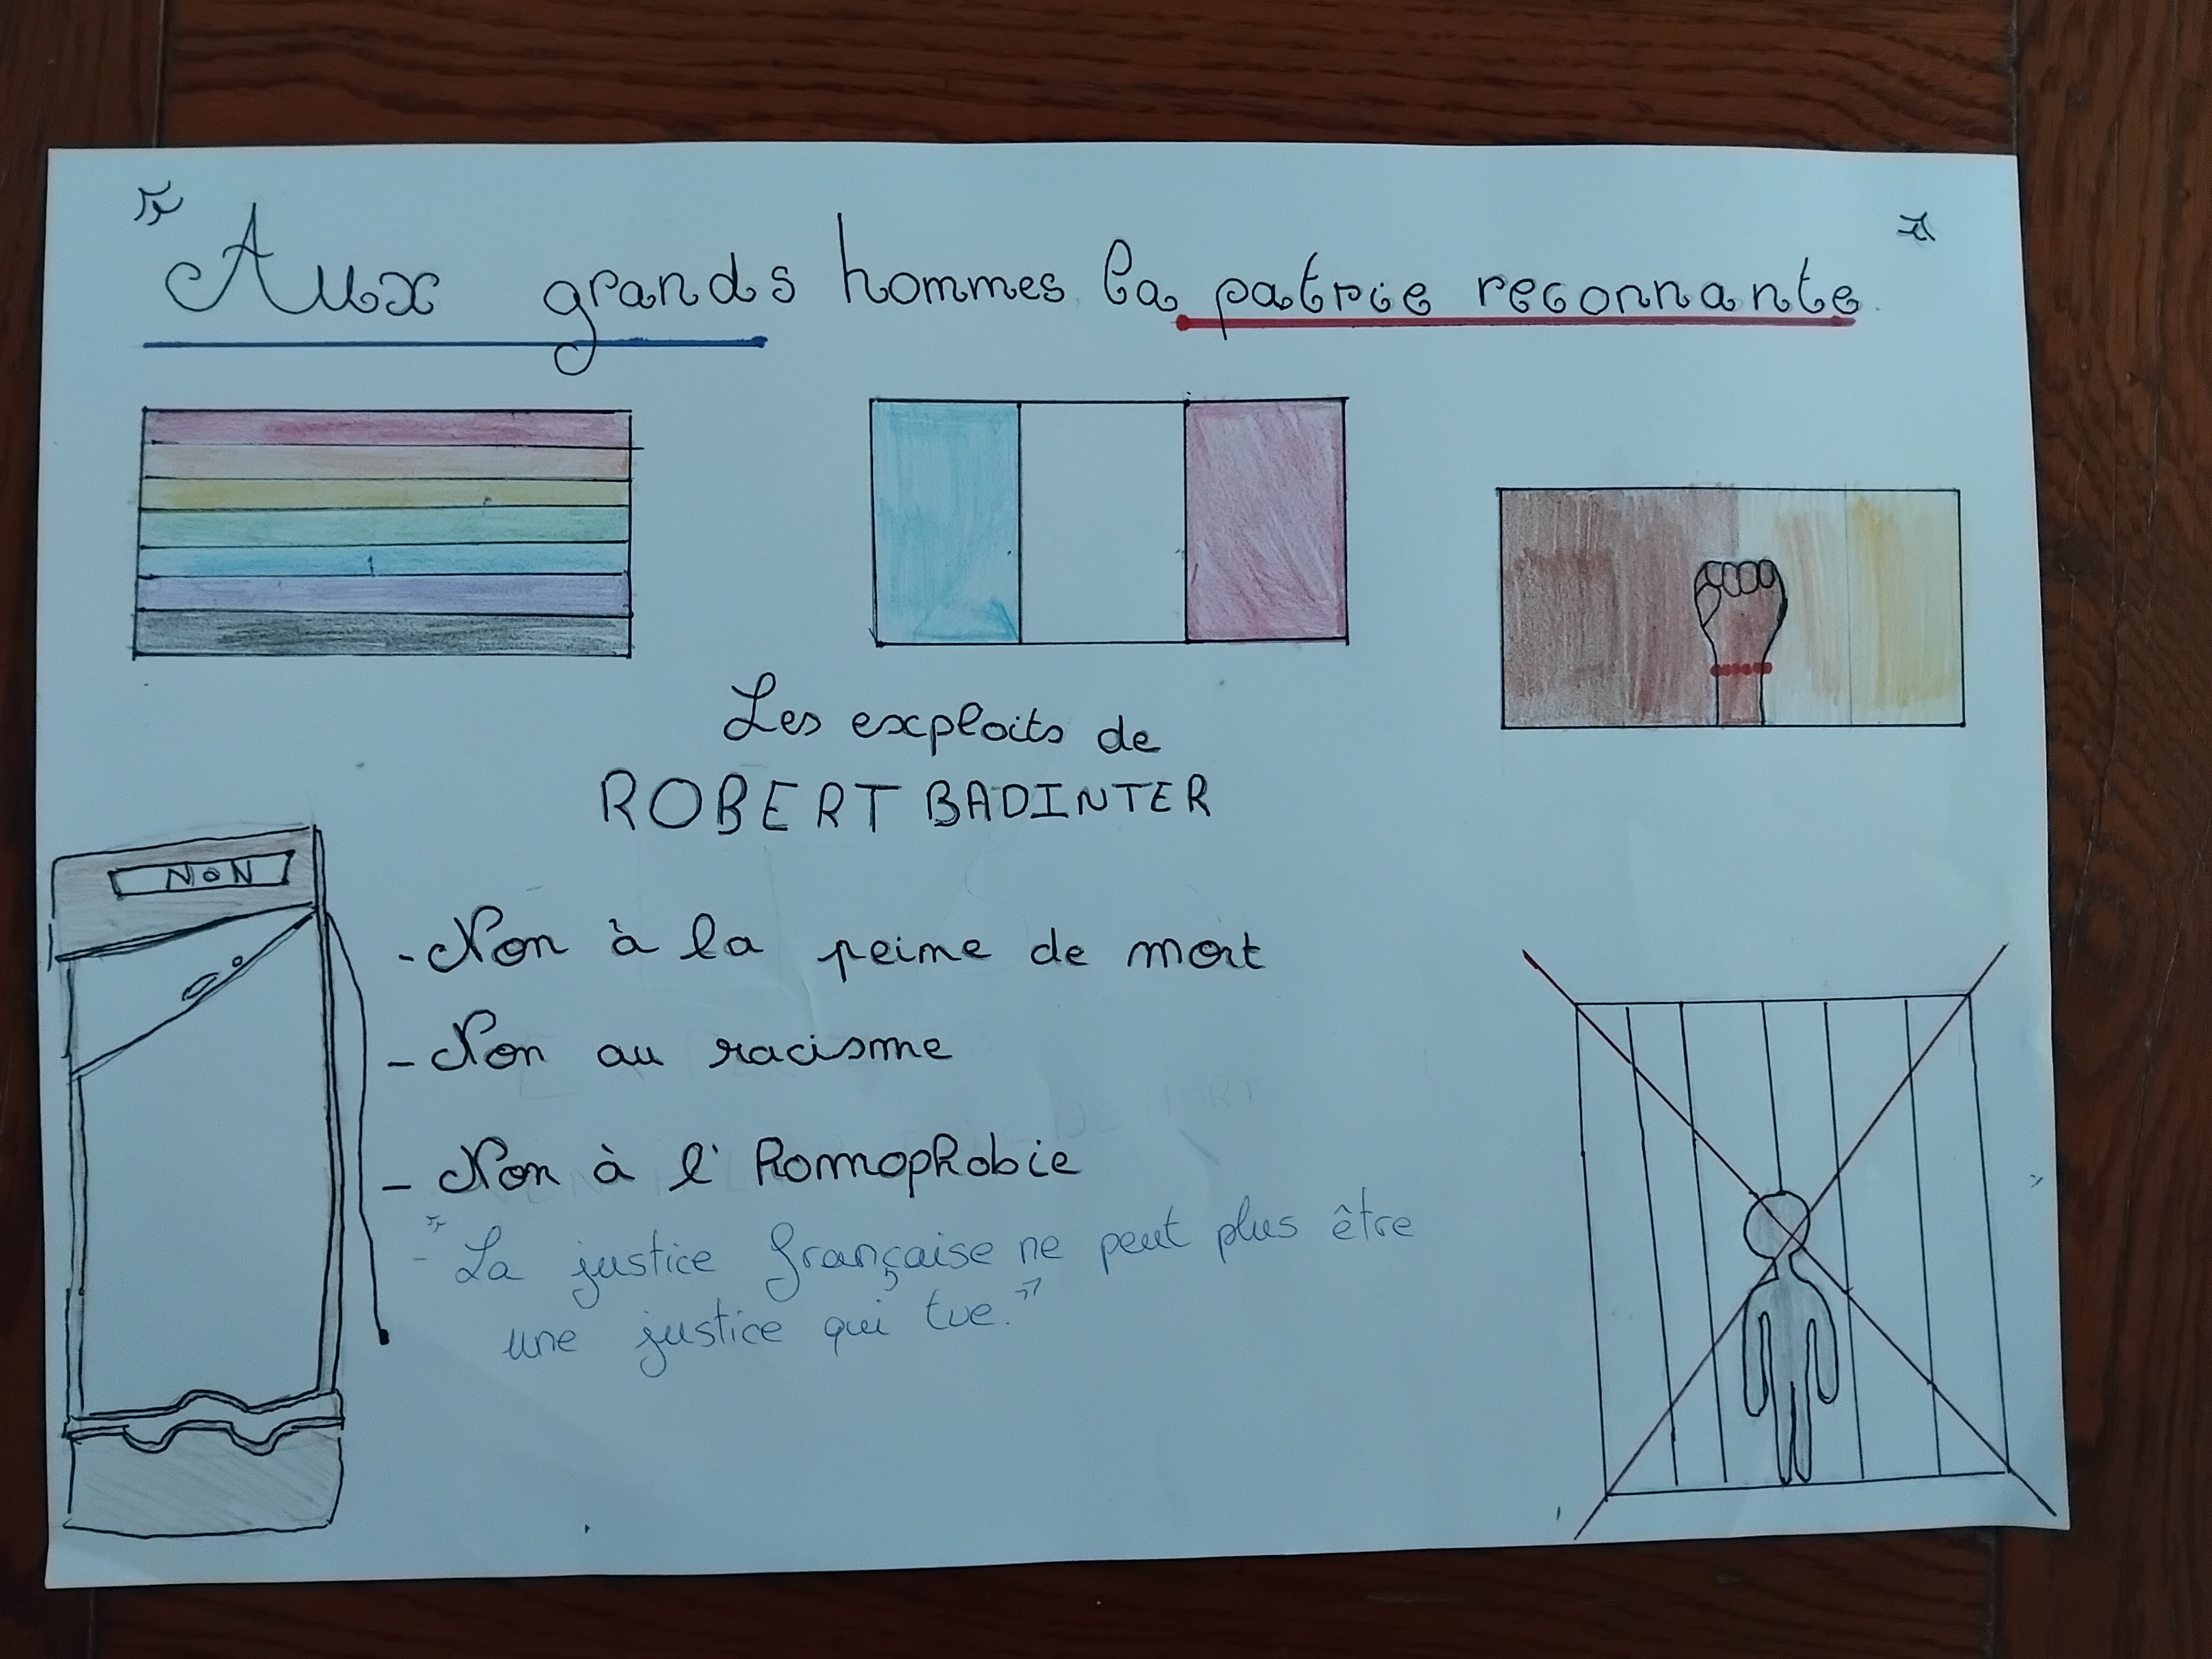 « Aux grands hommes la patrie reconnante »
Les exploits de
ROBERT BADINTER
NON
- Non à la peine de mort
- Non au racisme
- Non à l'homophobie
- " La justice française ne peut plus être
une justice qui tue. "